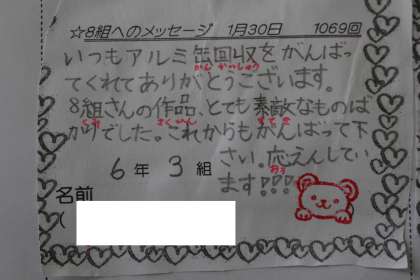 ☆8組へのメッセージ 1月30日 1069回
いつもアルミ缶回収をがんばっ
てくれてありがとうございます。
8組さんの作品、とても素敵なものば
かりでした。これからもがんばって下
さい。応えんしてい
ます!!!
6年 3組
名前
(